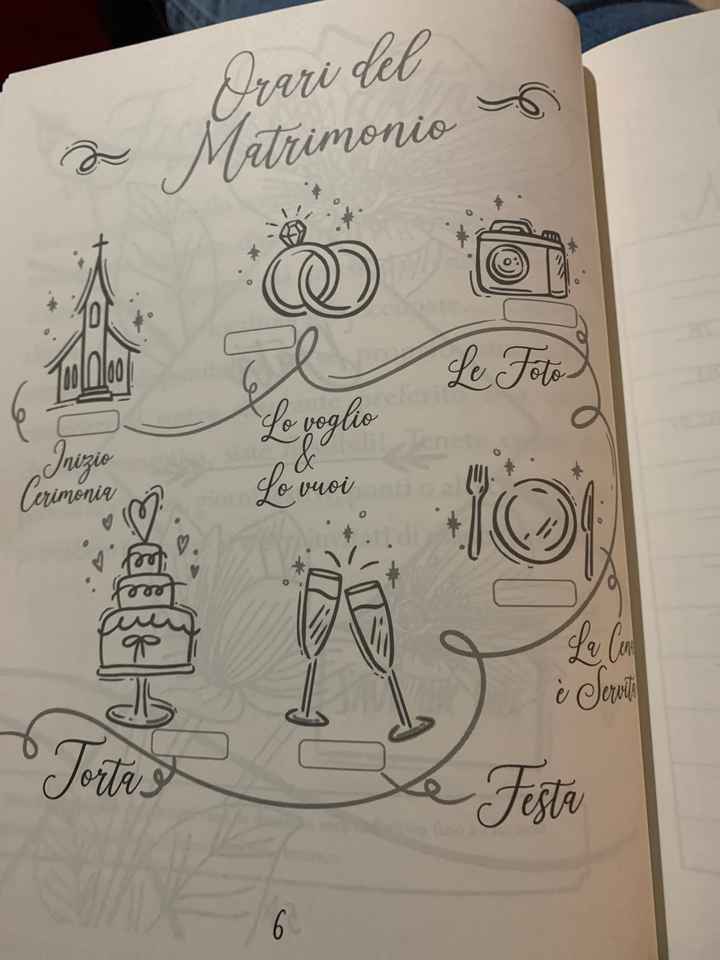 Orari del
Matrimonio
Inizio
Cerimonia
Lo voglio
&
Lo vuoi
Le Foto
La Cena
è Servita
Festa
Torta
6